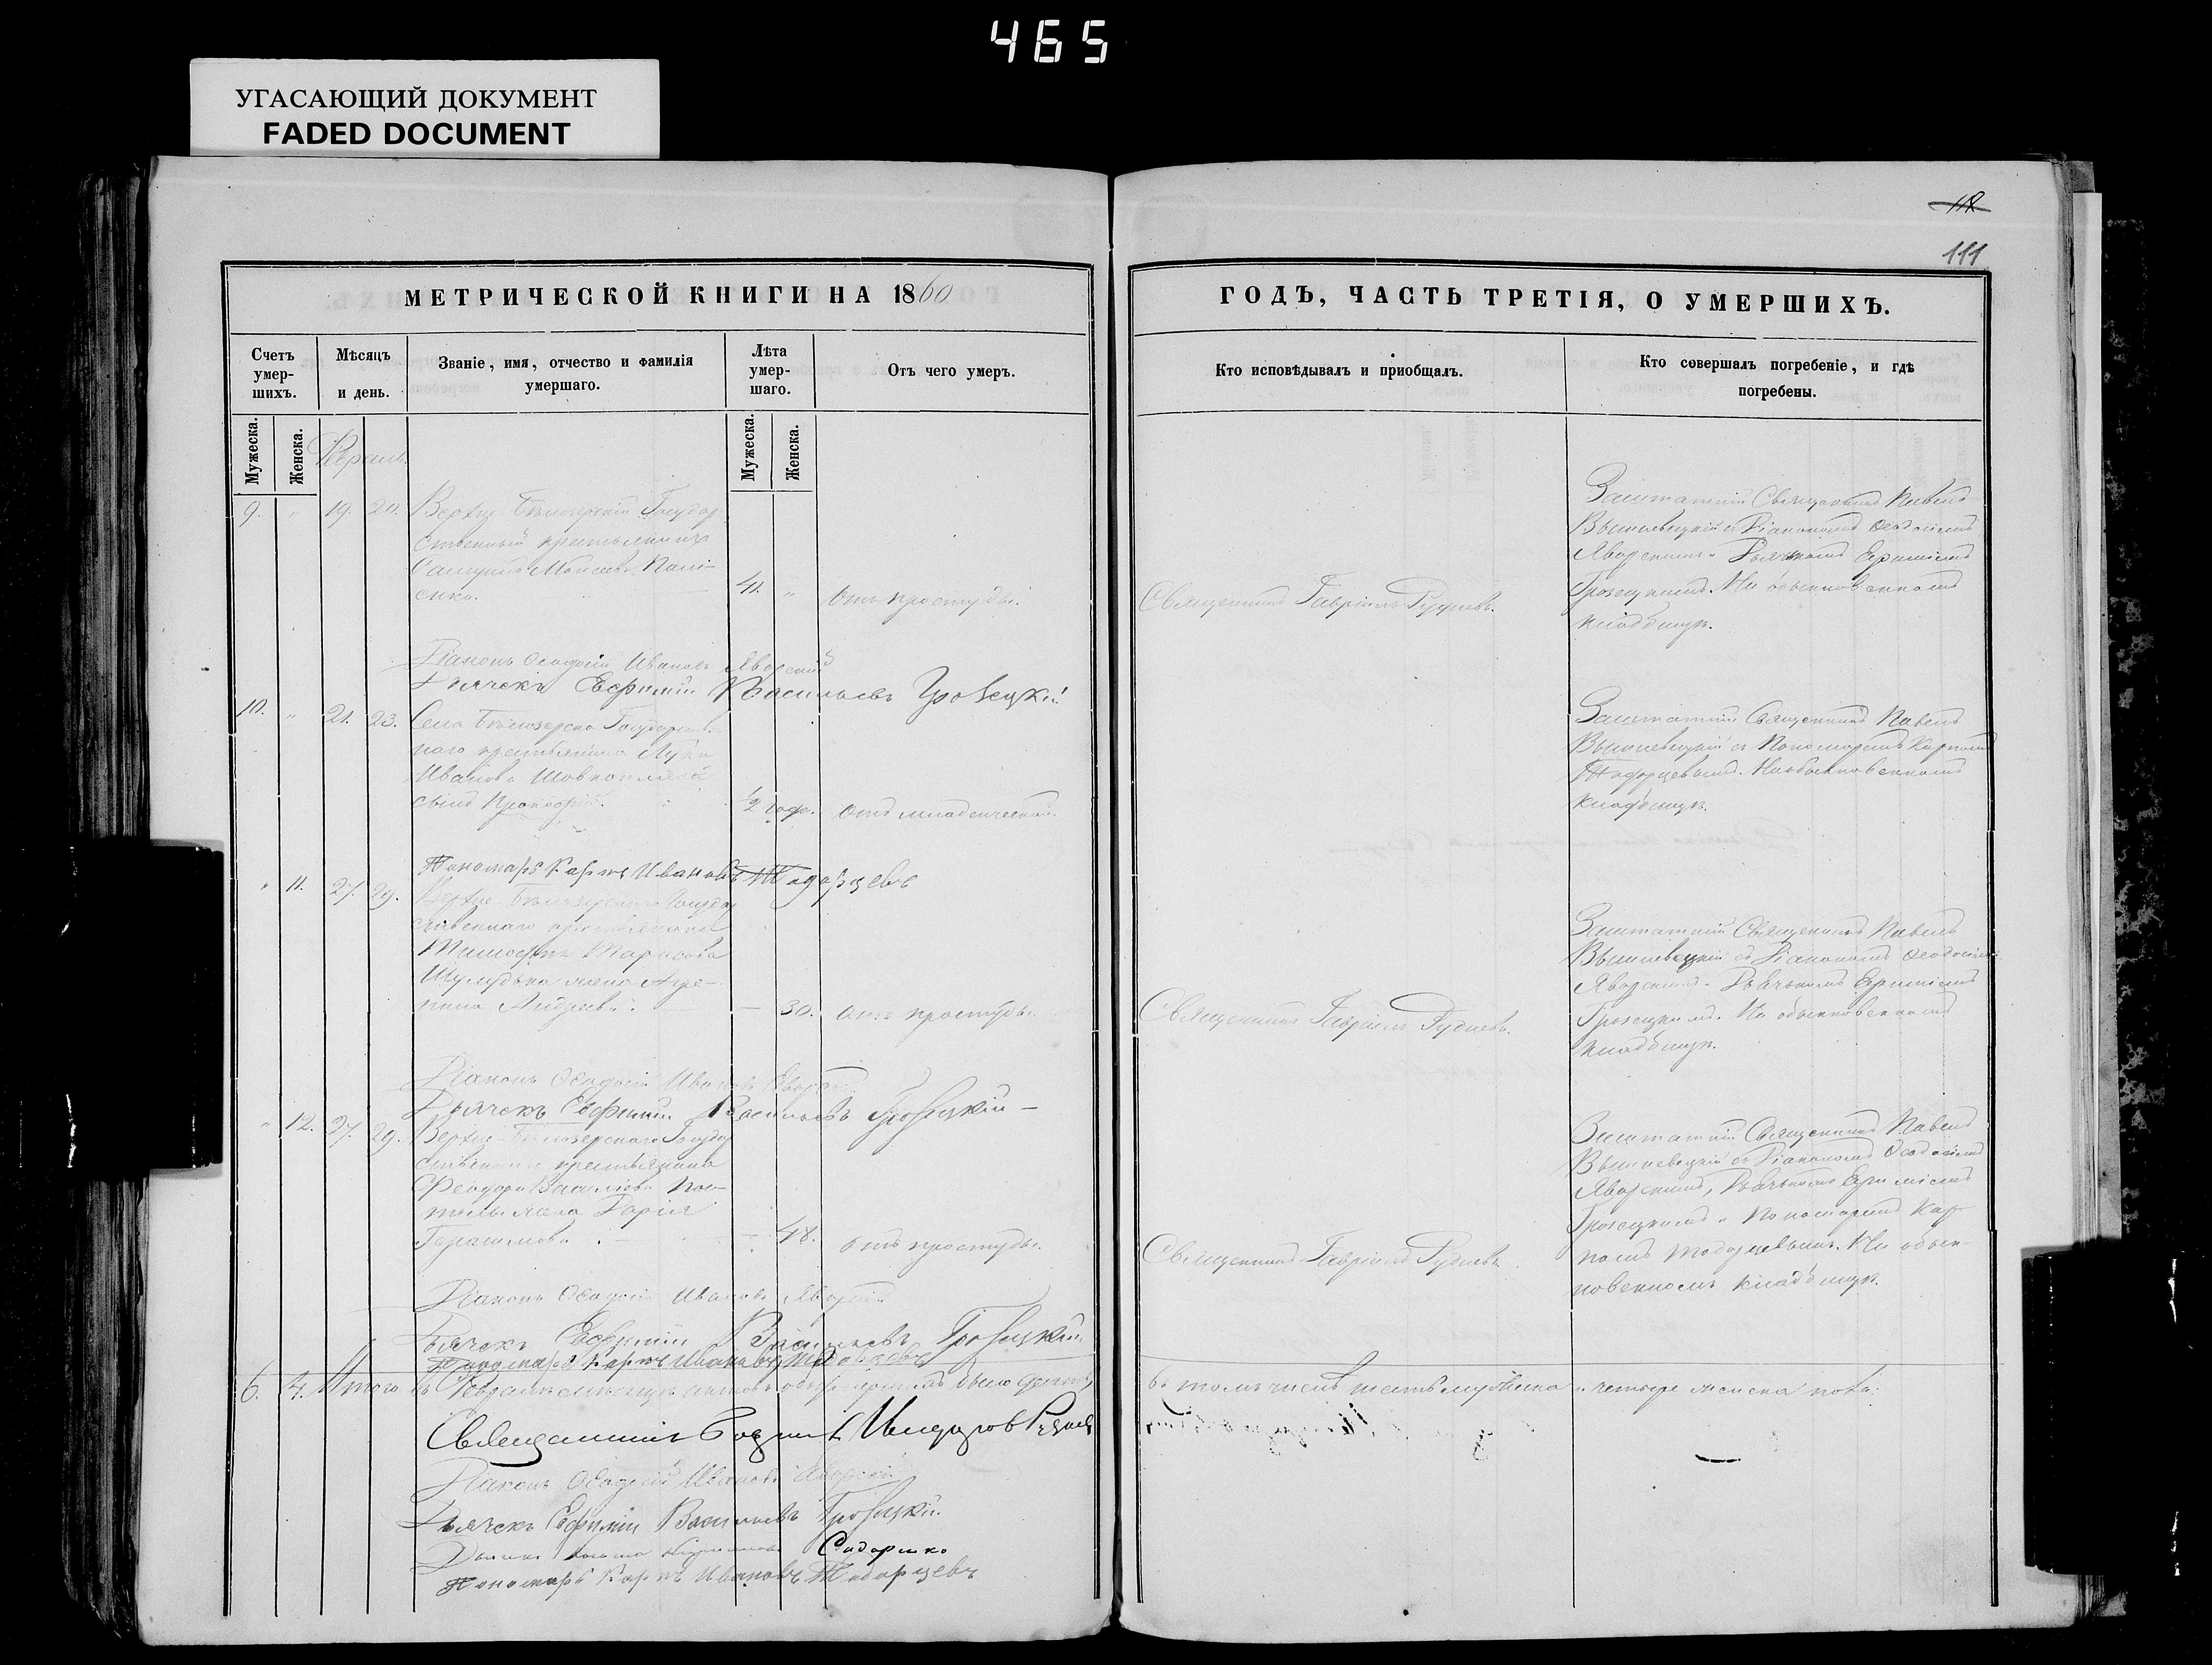 465
УГАСАЮЩИЙ ДОКУМЕНТ
FADED DOCUMENT
111
МЕТРИЧЕСКОЙ КНИГИ НА 1860
ГОДЪ, ЧАСТЬ ТРЕТІЯ, О УМЕРШИХЪ.
Счетъ умер-
шихъ.
Мѣсяцъ
и день.
Званіе, имя, отчество и фамилія
умершаго.
Лѣта
умер-
шаго.
Отъ чего умеръ.
Кто исповѣдывалъ и пріобщалъ.
Кто совершалъ погребеніе, и гдѣ
погребены.
Мужеска.
Женска.
Мужеска.
Женска.
Февраль.
9. " 19. 20. Верхне-Бѣлозерскій Государ
ственный крестьянинъ
Моисеевъ
енко. 41. " Отъ простуды.
Священникъ Гавріилъ Рудневъ.
Заштатный Священникъ Павелъ
Вышневецкій съ Діакономъ Ѳеодосіемъ
Яворскимъ и Дьячкомъ Евфиміемъ
Грозецкимъ. На обыкновенномъ
кладбищѣ.
Діаконъ Ѳеодосій Ивановъ Яворскій
Дьячекъ Евфимій Васильевъ Грозецкій
10. " 21. 23. Села Бѣлозерска Государствен
наго крестьянина Луки
Иванова
сынъ Прокофій. 1/2 года. Отъ младенческой.
Заштатный Священникъ Павелъ
Вышневецкій съ Пономаремъ Карпомъ
Тодорцевымъ. На обыкновенномъ
кладбищѣ.
Пономарь Карпъ Ивановъ Тодорцевъ
" 11. 27. 29. Верхне-Бѣлозерскаго Государ
ственнаго крестьянина
Тимофея Тарасова
Шулудька жена Агре-
пина Андреева. — 30. Отъ простуды.
Священникъ Гавріилъ Рудневъ.
Заштатный Священникъ Павелъ
Вышневецкій съ Діакономъ Ѳеодосіемъ
Яворскимъ и Дьячкомъ Евфиміемъ
Грозецкимъ. На обыкновенномъ
кладбищѣ.
Діаконъ Ѳеодосій Ивановъ Яворскій
Дьячекъ Евфимій Васильевъ Грозецкій
" 12. 27. 29. Верхне-Бѣлозерскаго Государ
ственнаго крестьянина
Феодора Васильева
жена Дарія
Герасимова. — 48. Отъ простуды.
Священникъ Гавріилъ Рудневъ
Заштатный Священникъ Павелъ
Вышневецкій съ Діакономъ Ѳеодосіемъ
Яворскимъ, Дьячкомъ Евфиміемъ
Грозецкимъ и Пономаремъ Кар-
помъ Тодорцевымъ. На обык-
новенномъ кладбищѣ.
Діаконъ Ѳеодосій Ивановъ Яворскій
Дьячекъ Евфимій Васильевъ Грозецкій
Пономарь Карпъ Ивановъ Тодорцевъ
6. 4. Итого въ Февралѣ мѣсяцѣ было десять,
въ томъ числѣ шесть мужеска и четыре женска пола.
Священникъ Рудневъ
Діаконъ Ѳеодосій Ивановъ Яворскій
Дьячекъ Евфимій Васильевъ Грозецкій
Сидоренко
Пономарь Карпъ Ивановъ Тодорцевъ